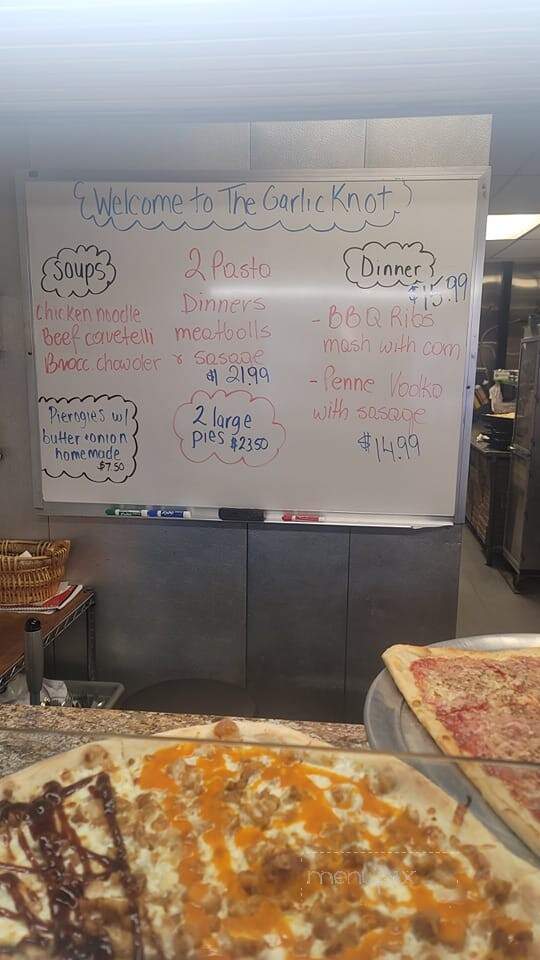 Welcome to The Garlic Knot
Soups
Chicken noodle
Beef cavetelli
Brocc. chowder
Pierogies w/
butter + onion
homemade
$7.50
2 Pasta
Dinners
meatballs
& sasage
$21.99
2 large
pies $23.50
Dinner
$15.99
- BBQ Ribs
mash with corn
- Penne Vodka
with sasage
$14.99
menupix